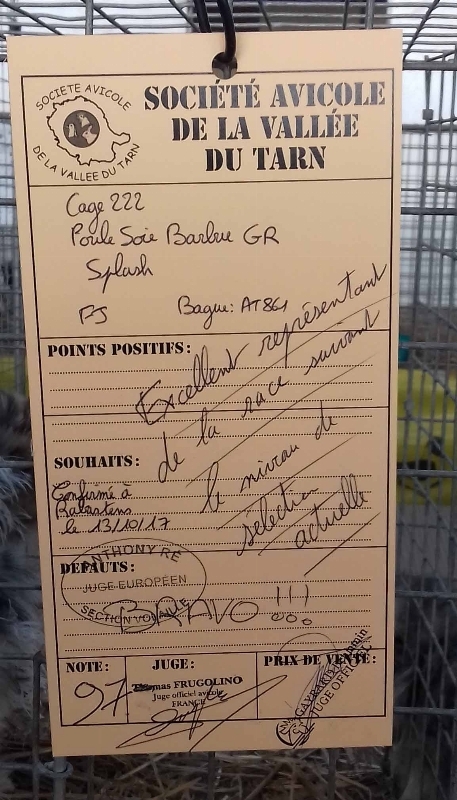 SOCIETE AVICOLE
DE LA VALLEE DU TARN
SOCIÉTÉ AVICOLE
DE LA VALLÉE
DU TARN
Cage 222
Poule Soie Barbue GR
Splash
Bague: AT861
POINTS POSITIFS:
Excellent représentant
de la race suivant
le niveau de
sélection
actuelle
SOUHAITS:
Confirmé à
Rabastens
le 13/10/17
DÉFAUTS:
ANTHONY RÉ
JUGE EUROPÉEN
SECTION VOLAILLE
BRAVO !!!
NOTE:
97
JUGE:
Thomas FRUGOLINO
Juge officiel avicole
FRANCE
PRIX DE VENTE:
JUGE OFFICIEL